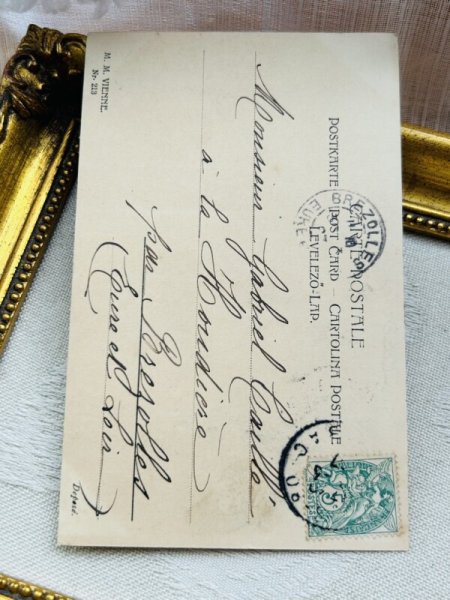 CARTE POSTALE
POSTKARTE — POST CARD — CARTOLINA POSTALE
LEVELEZŐ-LAP.
Monsieur Gabriel Caillé
à la Houdière
par Brezolles
(Eure et Loir)
M. M. VIENNE.
Nr. 213
Déposé.
5